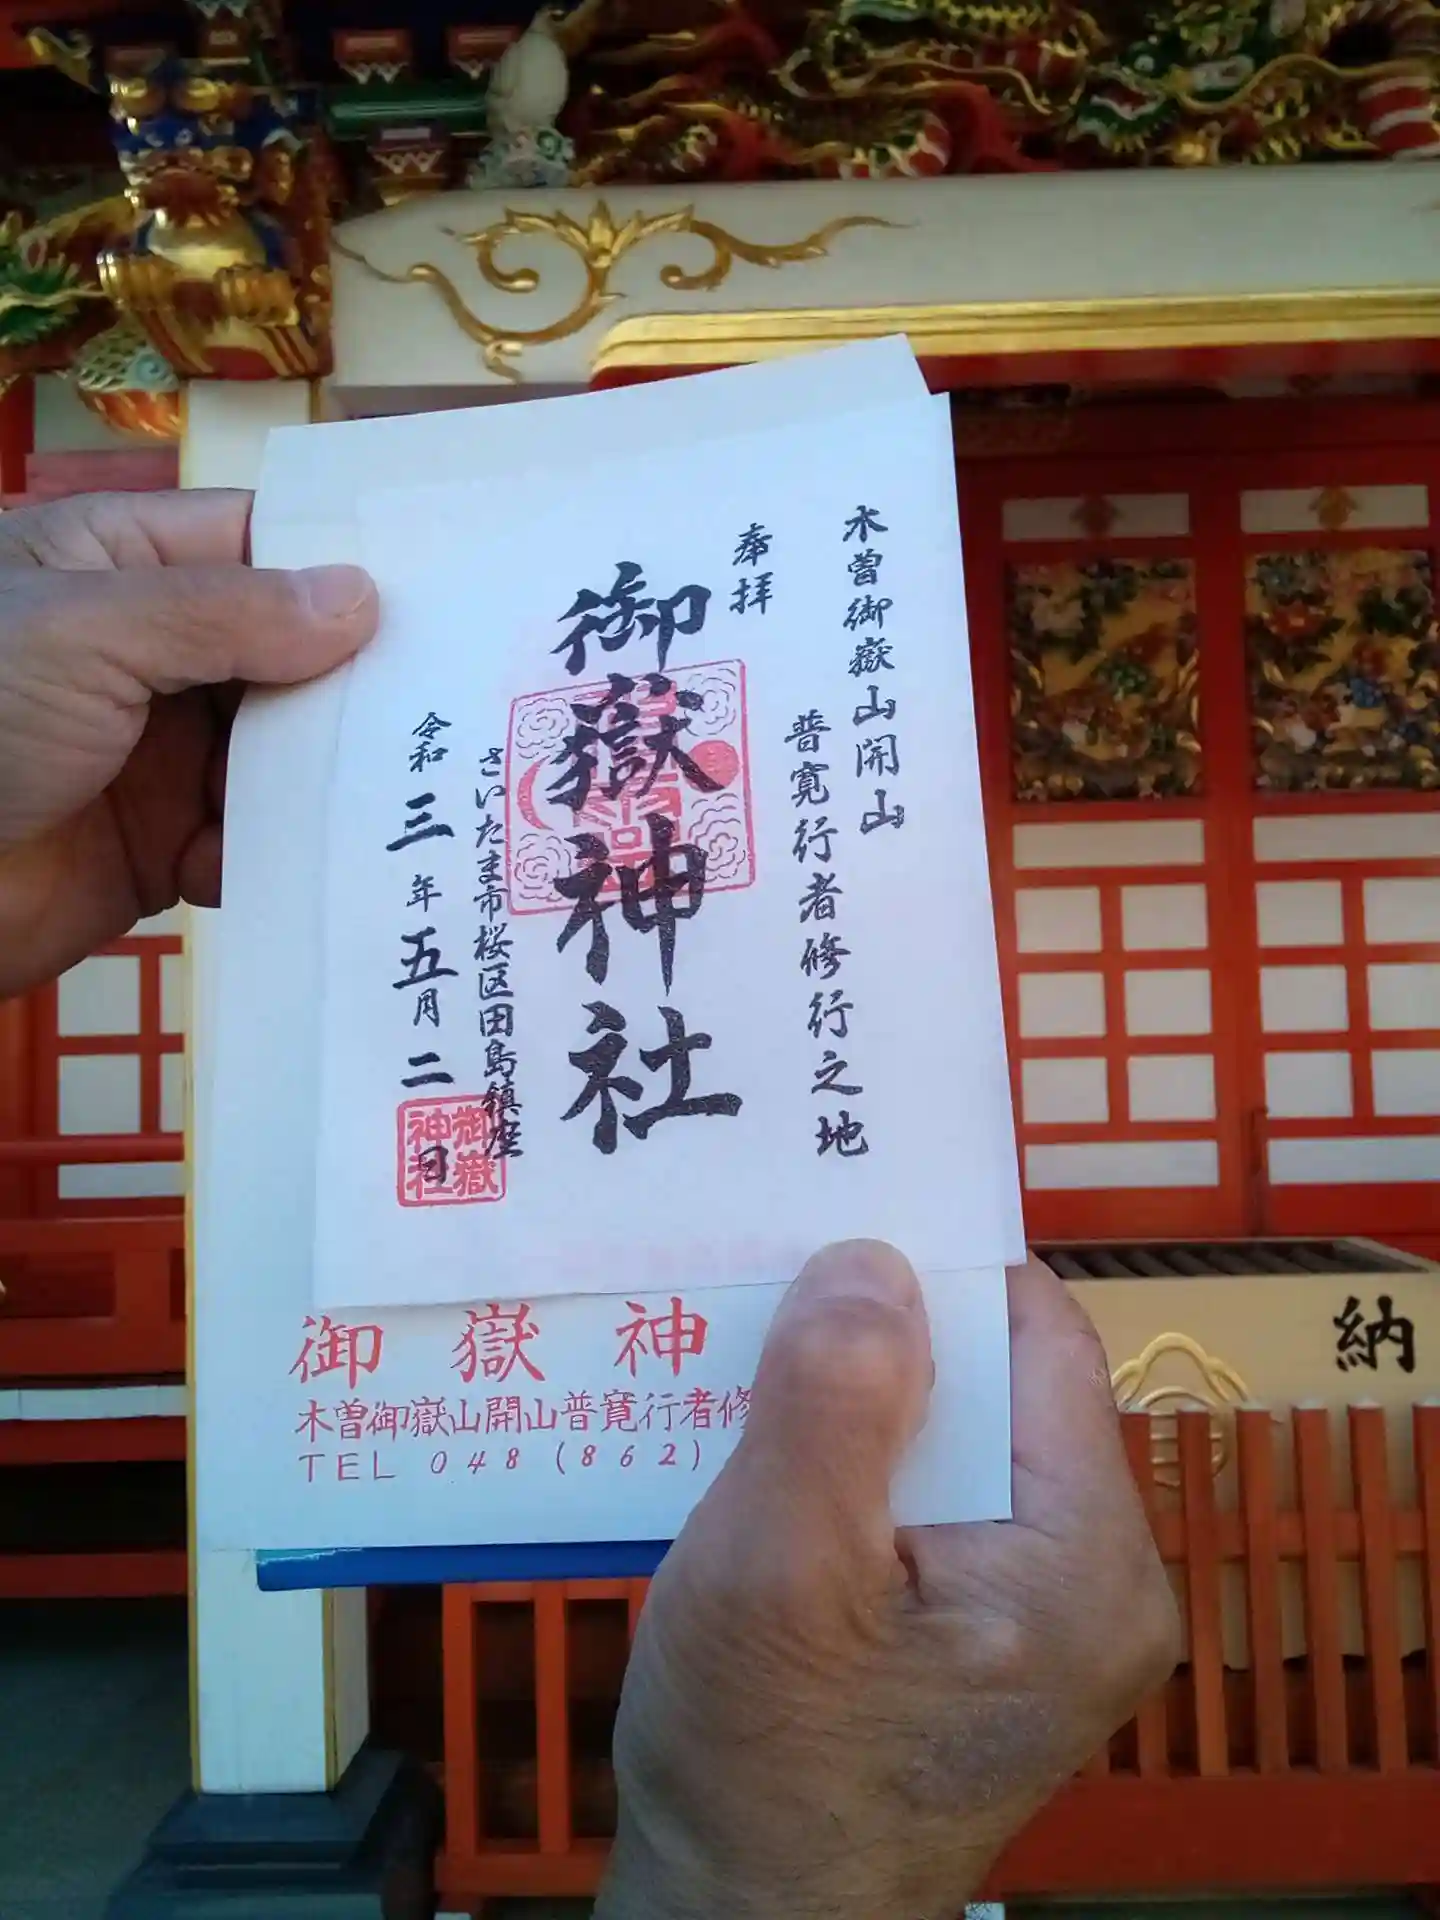 木曽御嶽山開山
普寛行者修行之地
奉拝
御嶽神社
さいたま市桜区田島鎮座
令和三年五月二日
御嶽
神社
御嶽神
木曽御嶽山開山普寛行者修
TEL 048 (862)
納